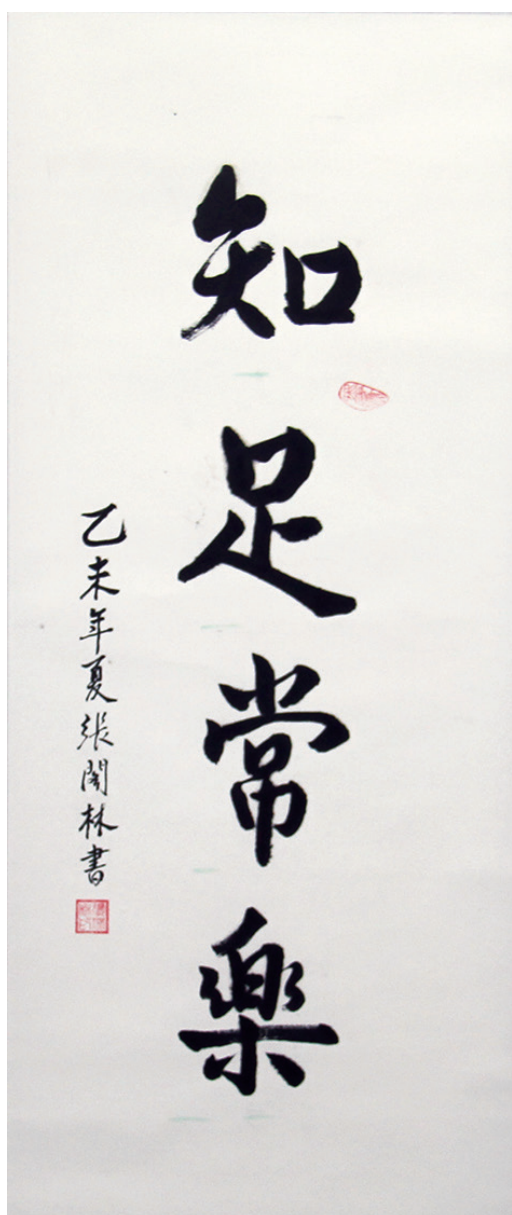 知足常樂
乙未年夏張閣林書